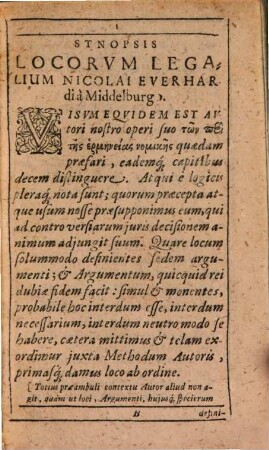 SYNOPSIS
LOCORVM LEGA-
LIUM NICOLAI EVERHAR-
di à Middelburg).
VISVM EQVIDEM EST AV-
tori nostro operi suo τῶν περὶ
τῆς ἑρμηνείας νομικῆς quædam
præfari, eademq́; capitibus
decem distinguere. Atqui è logicis
pleraq́; nota sunt; quorum præcepta at-
que usum nosse præsupponimus eum, qui
ad controversiarum juris decisionem a-
nimum adjungit suum. Quare locum
solummodo definientes sedem argu-
menti; & Argumentum, quicquid rei
dubiæ fidem facit: simul & monentes,
probabile hoc interdum esse, interdum
necessarium, interdum neutro modo se
habere, cætera mittimus & telam ex-
ordimur juxta Methodum Autoris,
primasq́; damus loco ab ordine.
( Totius præambuli contextu Autor aliud non a-
git, quàm ut loci, Argumenti, hujusq́; specierum
B
defini-